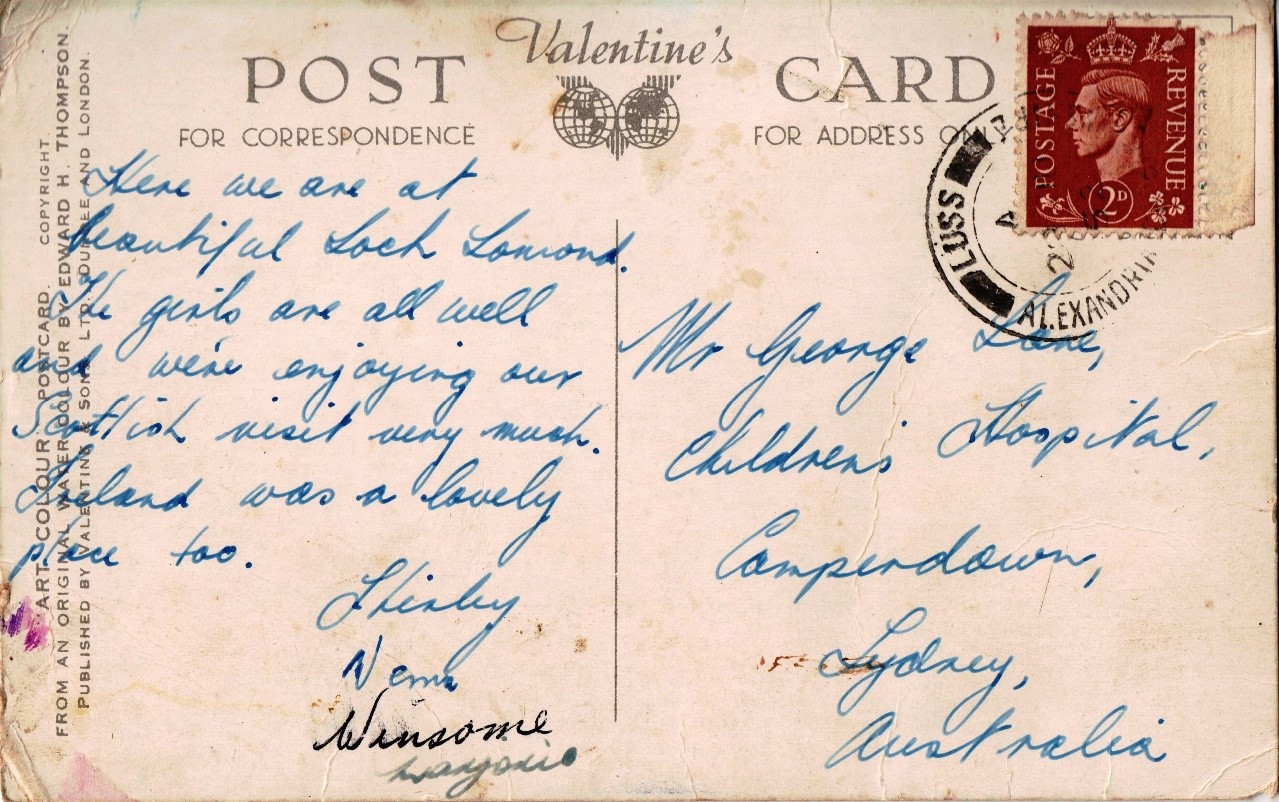 POST Valentine's CARD
FOR CORRESPONDENCE
FOR ADDRESS ONLY
POSTAGE
REVENUE
2D
LUSS
ALEXANDRIA
Here we are at
beautiful Loch Lomond.
The girls are all well
and we're enjoying our
Scottish visit very much.
Ireland was a lovely
place too.
Shirley
Winsome
Marjorie
Mr George Lane,
Children's Hospital,
Camperdown,
Sydney,
Australia
ART COLOUR POSTCARD. COPYRIGHT.
FROM AN ORIGINAL WATER COLOUR BY EDWARD H. THOMPSON.
PUBLISHED BY VALENTINE & SONS LTD. DUNDEE AND LONDON.